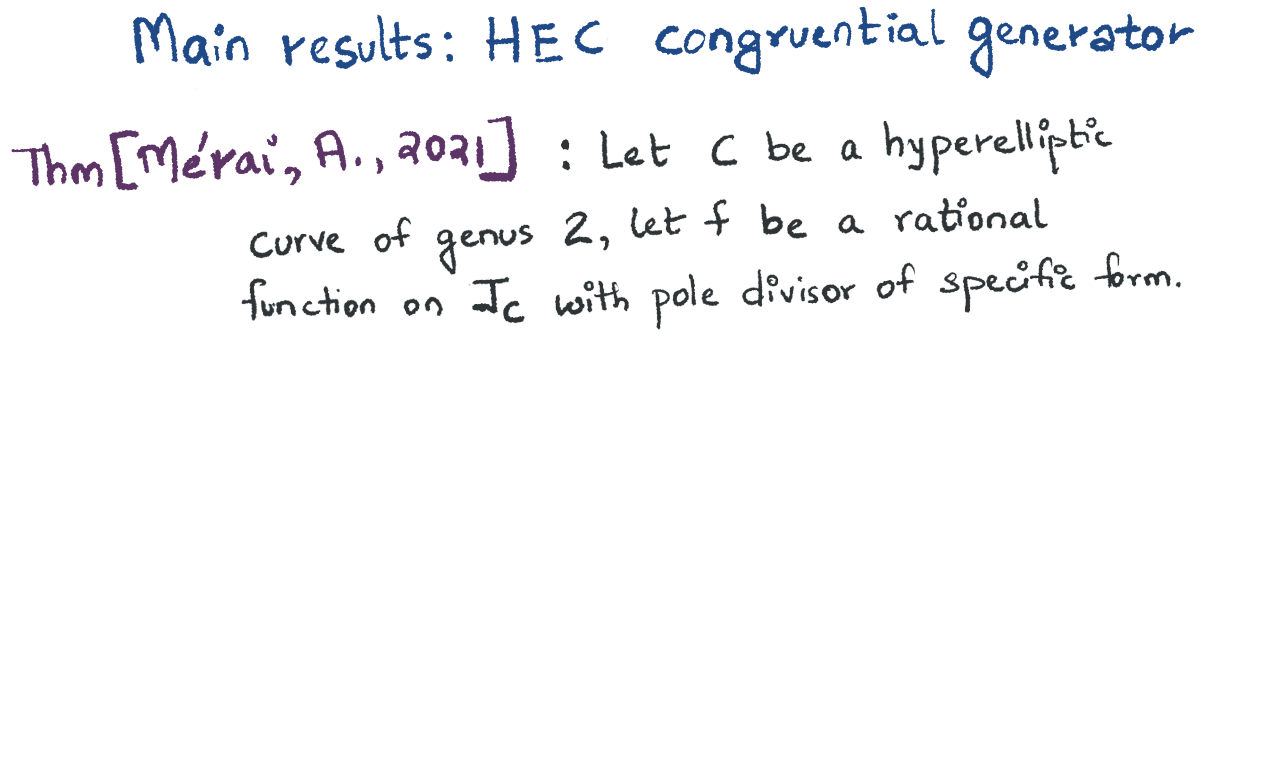 Main results: HEC congruential generator
Thm [Mérai, A., 2021] : Let C be a hyperelliptic
curve of genus 2, let f be a rational
function on J_C with pole divisor of specific form.